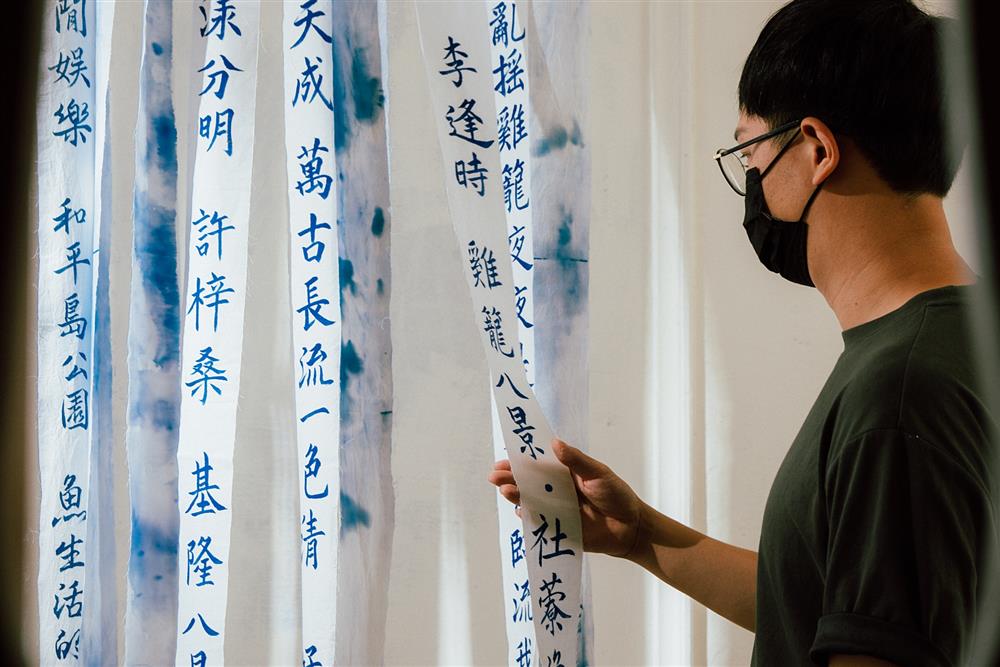 亂搖雞籠夜夜 臥流我
李逢時 雞籠八景・社藔
天成 萬古長流一色清
分明 許梓桑 基隆八景
閒娛樂 和平島公園 魚生活的